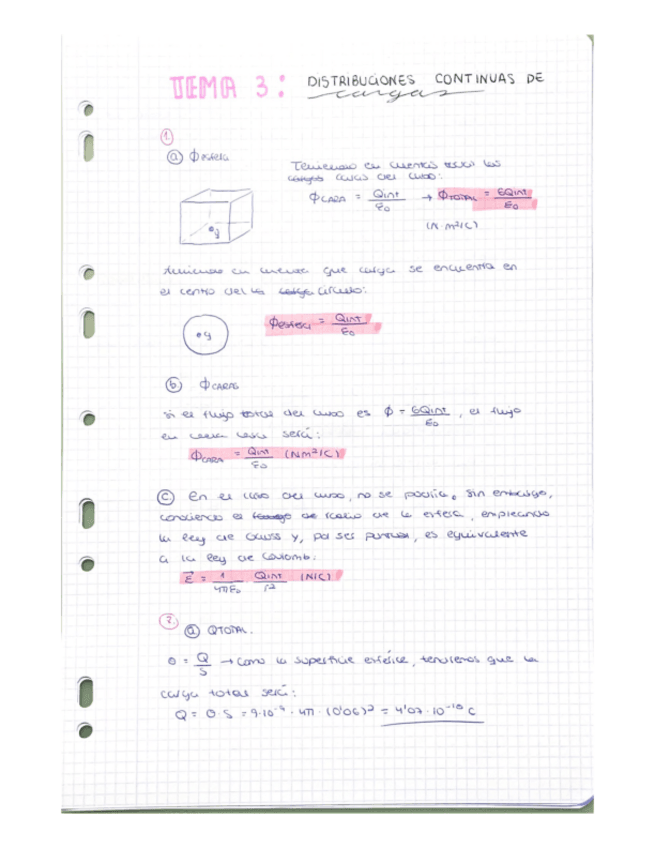 TEMA 3: DISTRIBUCIONES CONTINUAS DE
cargas
1.
a) Φ esfera
Teniendo en cuenta todas las
cargas caras del cubo:
Φ CARA = Qint/ε₀ → Φ TOTAL = 6Qint/ε₀
(N·m²/C)
q
teniendo en cuenta que carga se encuentra en
el centro del la carga círculo:
q
Φ esfera = Qint/ε₀
b) Φ CARAS
si el flujo total del cubo es Φ = 6Qint/ε₀, el flujo
en cada cara será:
Φ CARA = Qint/ε₀ (Nm²/C)
c) En el caso del cubo, no se podría. Sin embargo,
conociendo el radio de la esfera, empleando
la ley de Gauss y, por ser puntual, es equivalente
a la ley de Coulomb:
E = 1/4πε₀ Qint/r² (N/C)
2.
a) QTOTAL.
σ = Q/S → como la superficie esférica, tendremos que la
carga total será:
Q = σ·S = 9·10⁻⁹ · 4π · (0'06)² = 4'07·10⁻¹⁰ C